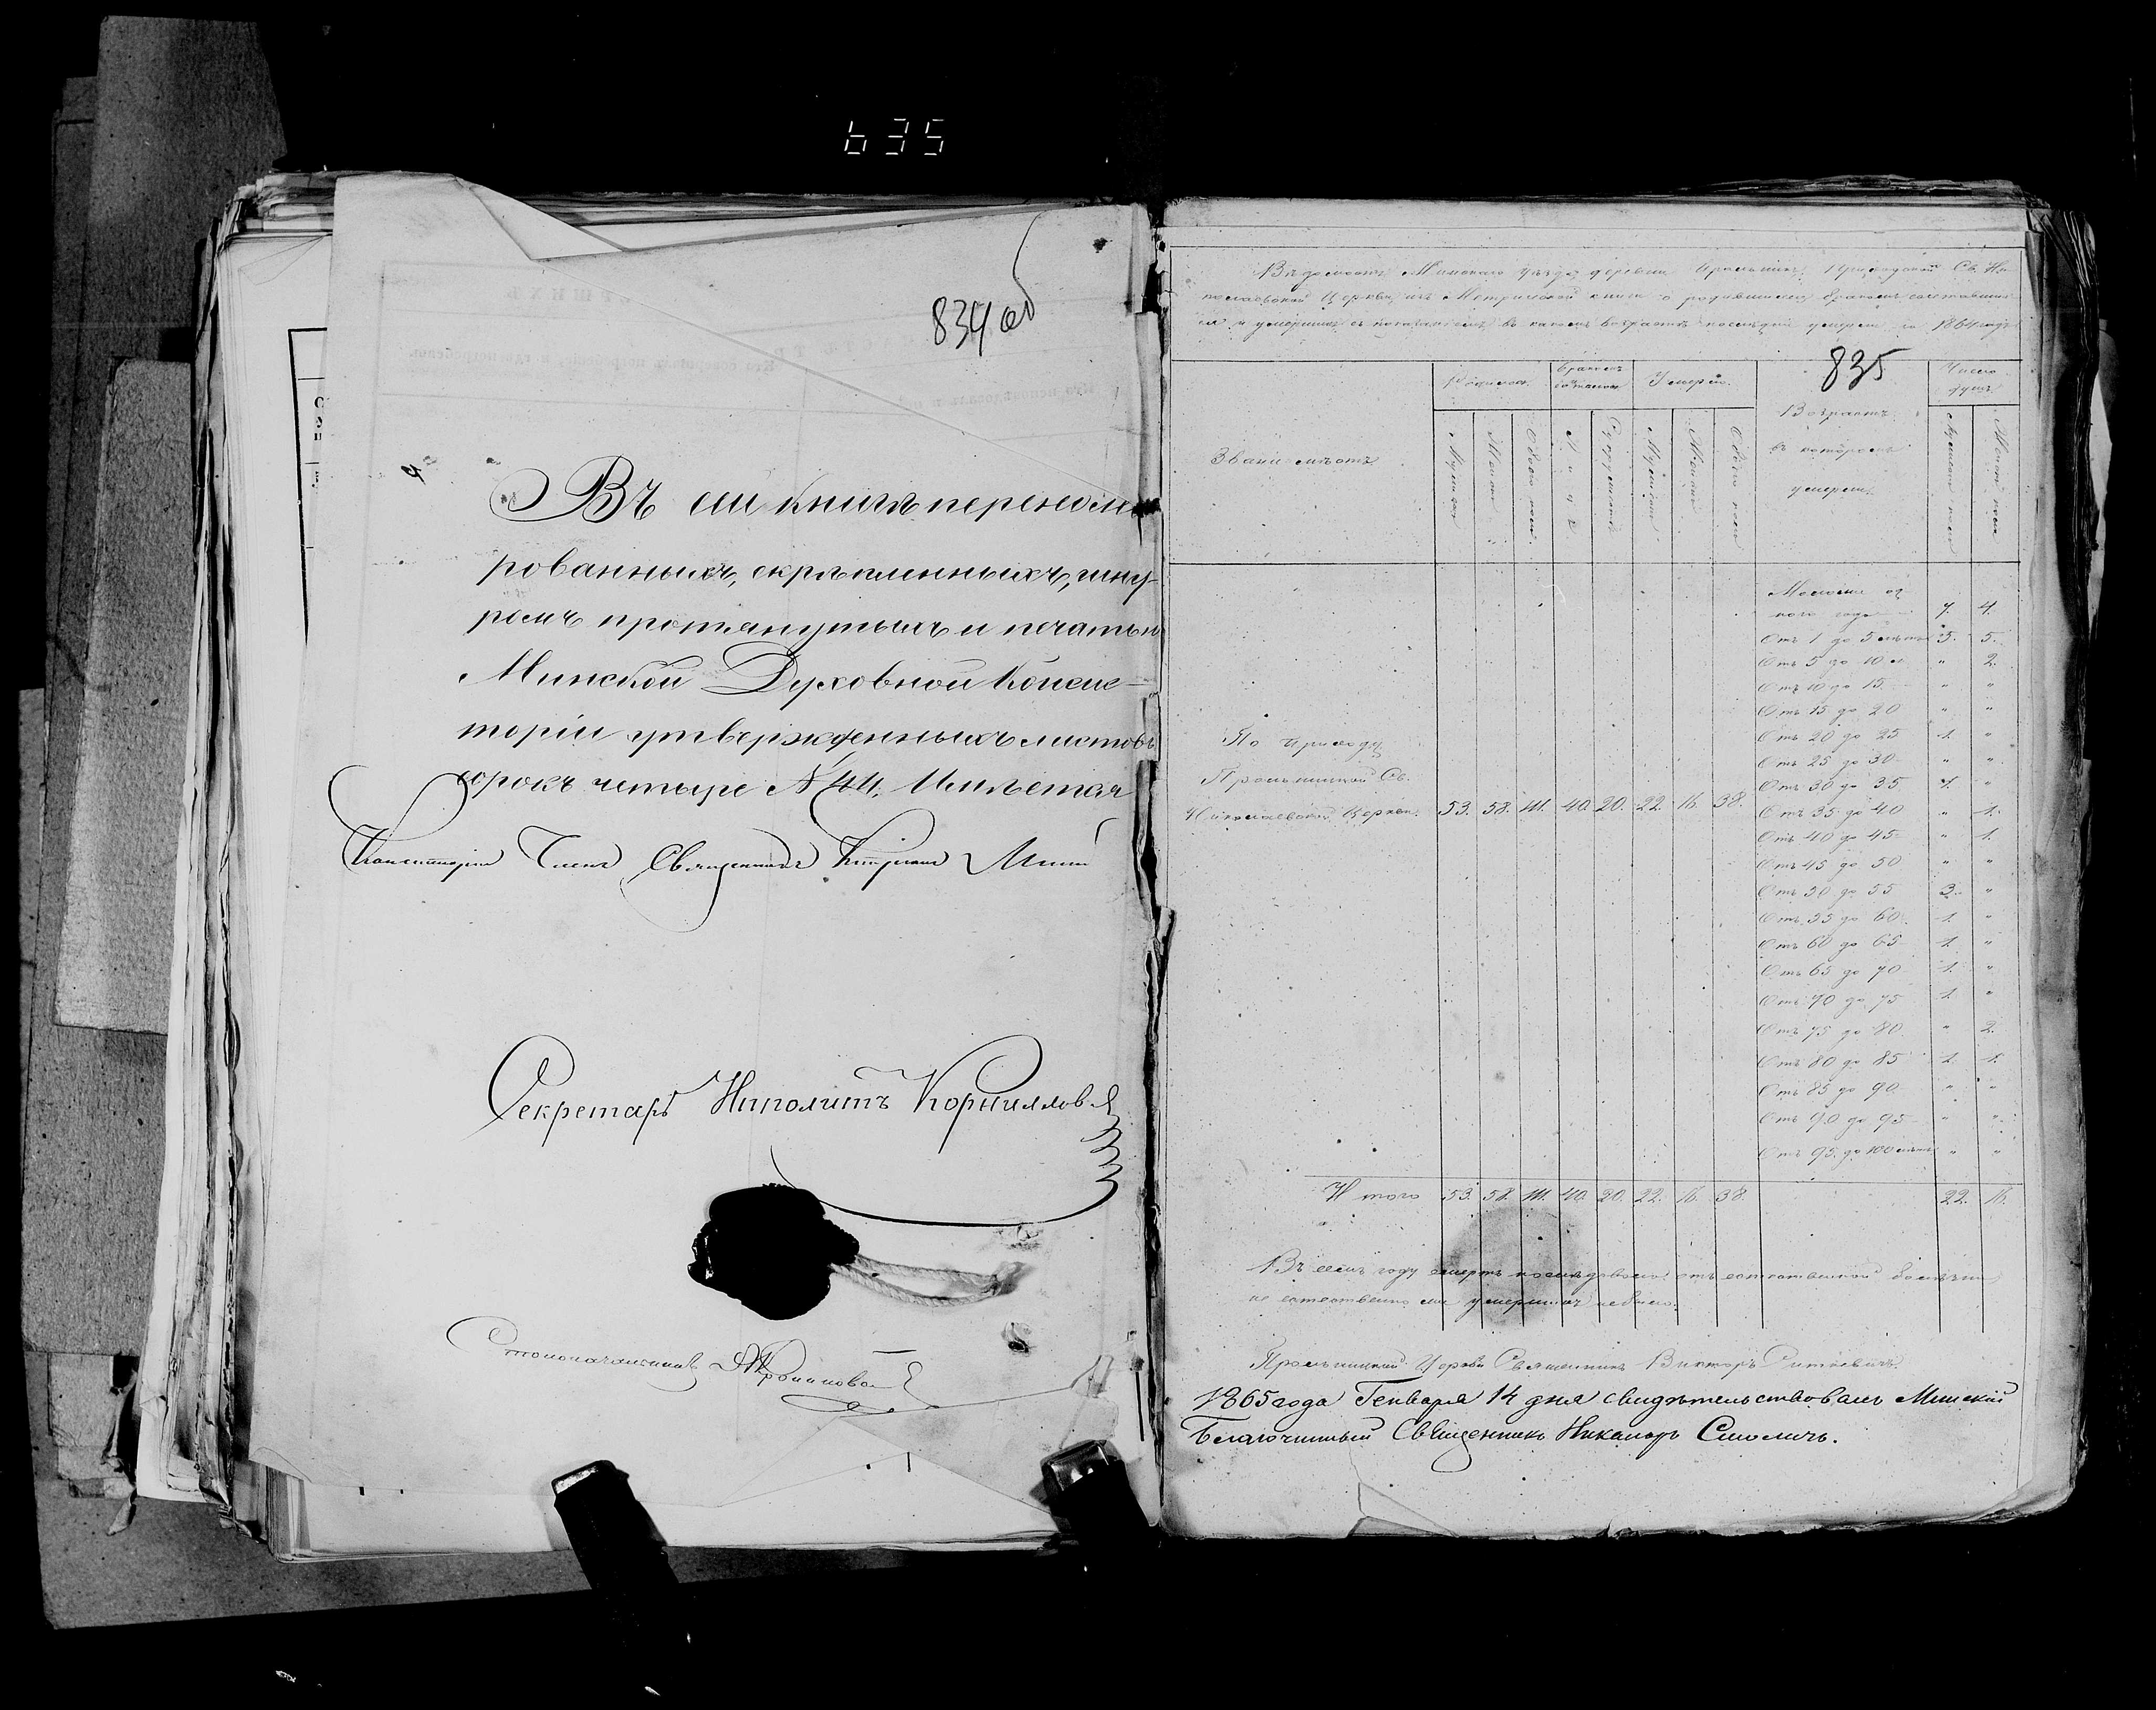 635
834 об
Въ сей книгѣ перенуме-
рованныхъ, скрѣпленныхъ, шну-
ромъ протянутыхъ и печатью
Минской Духовной Консис-
торіи утвержденныхъ листовъ
сорокъ четыре № 44.
Консисторіи Членъ Священникъ
Секретарь Иполитъ Корниловъ
Столоначальникъ
Вѣдомость Минскаго уѣзда деревни Приходской Св. Ни-
колаевской Церкви изъ Метрической книги о родившихся бракомъ сочетавших-
ся и умершихъ съ показаніемъ въ какомъ возрастѣ послѣдніе умерли за 1864 годъ
835
Званіе мѣстъ
Родилось
Мужеска
Женска
Обоего пола
Бракомъ сочеталось
Лицъ
Супружествъ
Умерло
Мужеска
Женска
Обоего пола
Возрастъ
въ которомъ
умерли
Число душъ
Мужеска пола
Женска пола
По приходу
Св.
Николаевской Церкви. 53. 58. 111. 40. 20. 22. 16. 38.
Моложе од-
ного года 7. 4.
Отъ 1 до 5 лѣтъ 5. 5.
Отъ 5 до 10 л. " 2.
Отъ 10 до 15 " "
Отъ 15 до 20 " "
Отъ 20 до 25 1. "
Отъ 25 до 30 " "
Отъ 30 до 35 1. "
Отъ 35 до 40 " 1.
Отъ 40 до 45 " 1.
Отъ 45 до 50 " "
Отъ 50 до 55 3. "
Отъ 55 до 60 1. "
Отъ 60 до 65 1. "
Отъ 65 до 70 1. "
Отъ 70 до 75 1. "
Отъ 75 до 80 " 2.
Отъ 80 до 85 1. 1.
Отъ 85 до 90 " "
Отъ 90 до 95 " "
Отъ 95 до 100 лѣтъ " "
Итого 53. 58. 111. 40. 20. 22. 16. 38. 22. 16.
Въ семъ году смерть послѣдовала отъ естественной болѣзни
не естественно же умершихъ небыло.
Церкви Священникъ Викторъ
1865 года Генваря 14 дня свидѣтельствовалъ Минскій
Благочинный Священникъ Никаноръ Смоличъ.